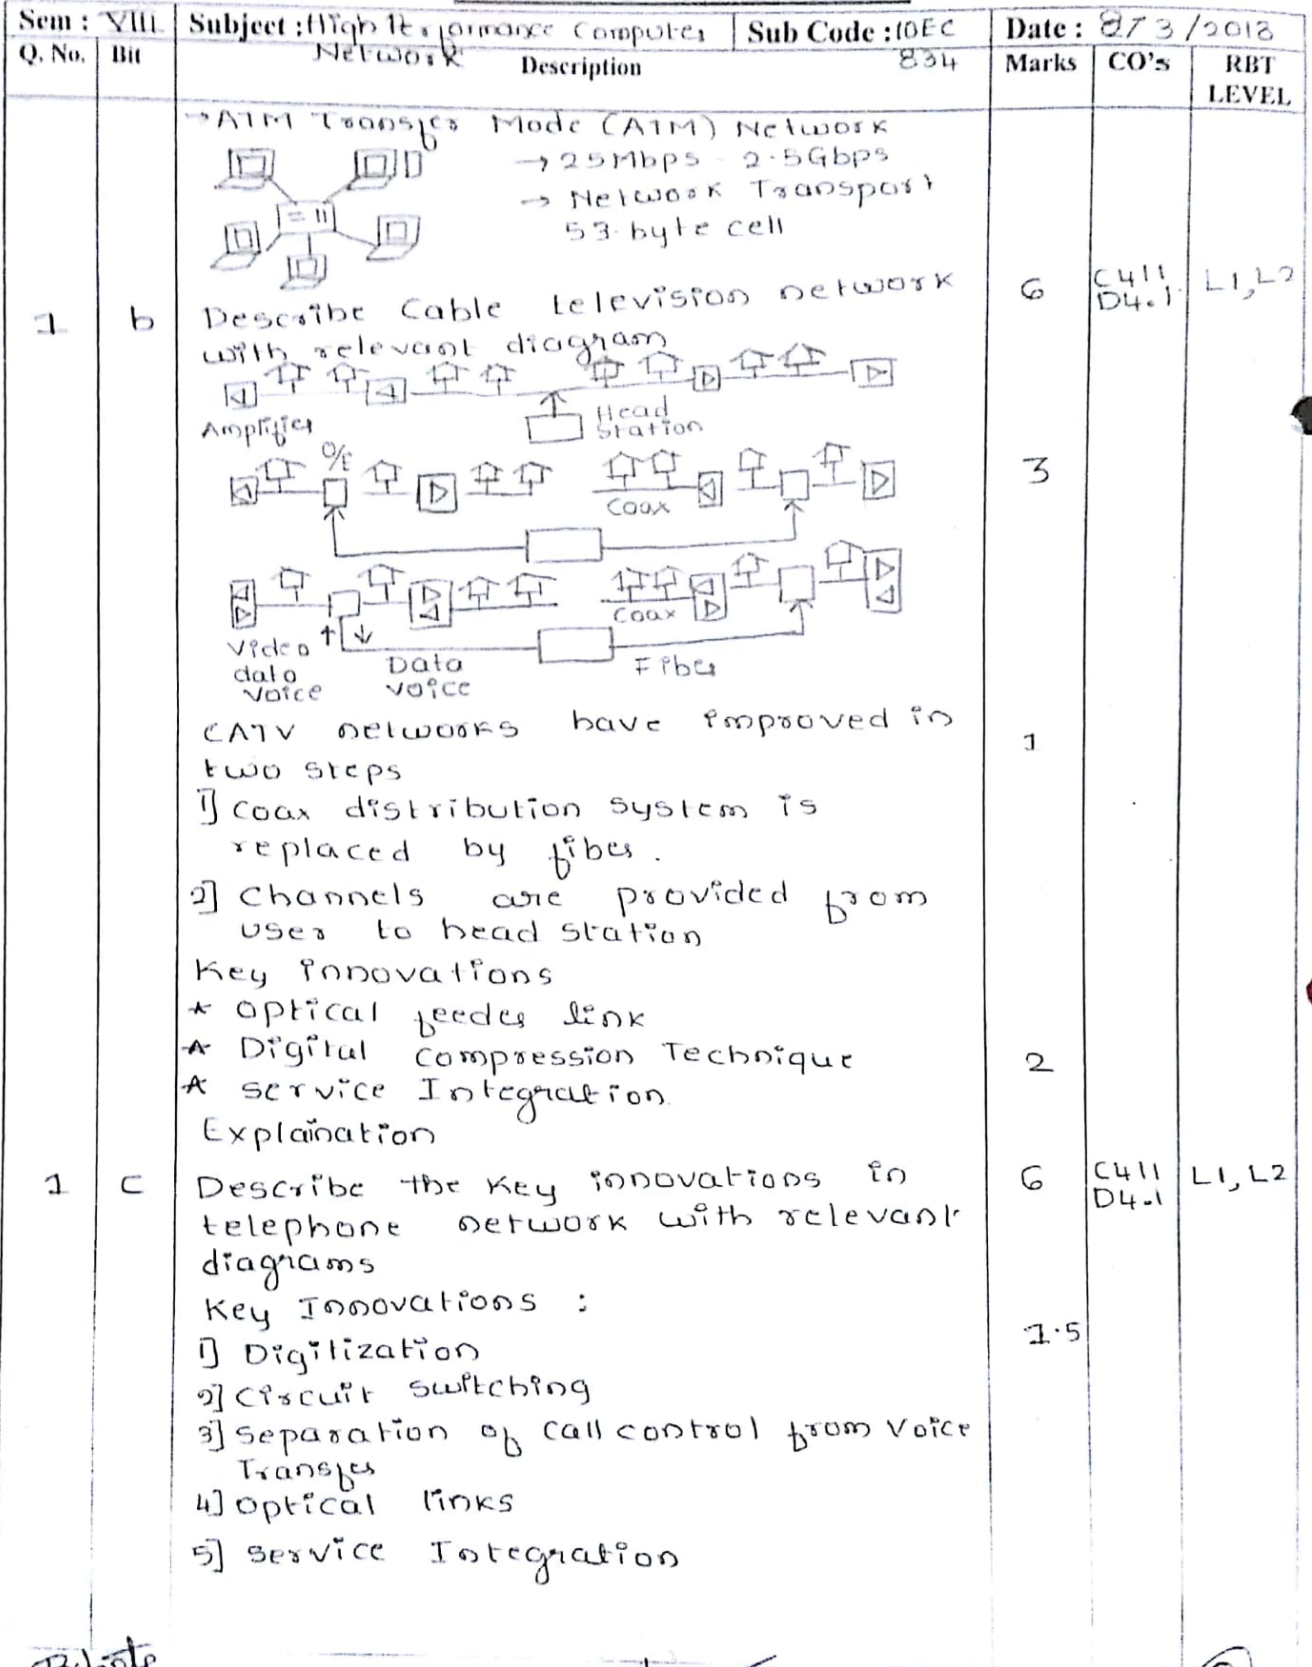 Sem : VIII Subject : High Performance Computer Sub Code : 10EC Date : 27 3 /2018
Network 834
Q. No. Bit Description Marks CO's RBT
LEVEL
→ ATM Transfer Mode (ATM) Network
→ 25Mbps - 2.5Gbps
→ Network Transport
53-byte cell
1 b Describe Cable television network 6 C411 L1,L2
D4.1
with relevant diagram
Amplifier
Head
Station
O/E
3
Coax
Coax
Video
data
Voice
Data
voice
Fiber
CATV networks have improved in
1
two steps
1] Coax distribution system is
replaced by fiber.
2] Channels are provided from
user to head station
Key innovations
* Optical feeder link
* Digital Compression Technique 2
* Service Integration
Explaination
1 c Describe the Key innovations in 6 C411 L1,L2
D4.1
telephone network with relevant
diagrams
Key Innovations :
1] Digitization 1.5
2] Circuit switching
3] Separation of Call control from Voice
Transfer
4] Optical links
5] Service Integration